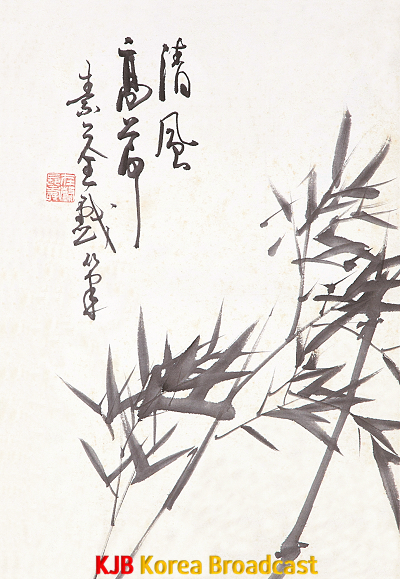 清風
高節
素 戱筆
KJB Korea Broadcast